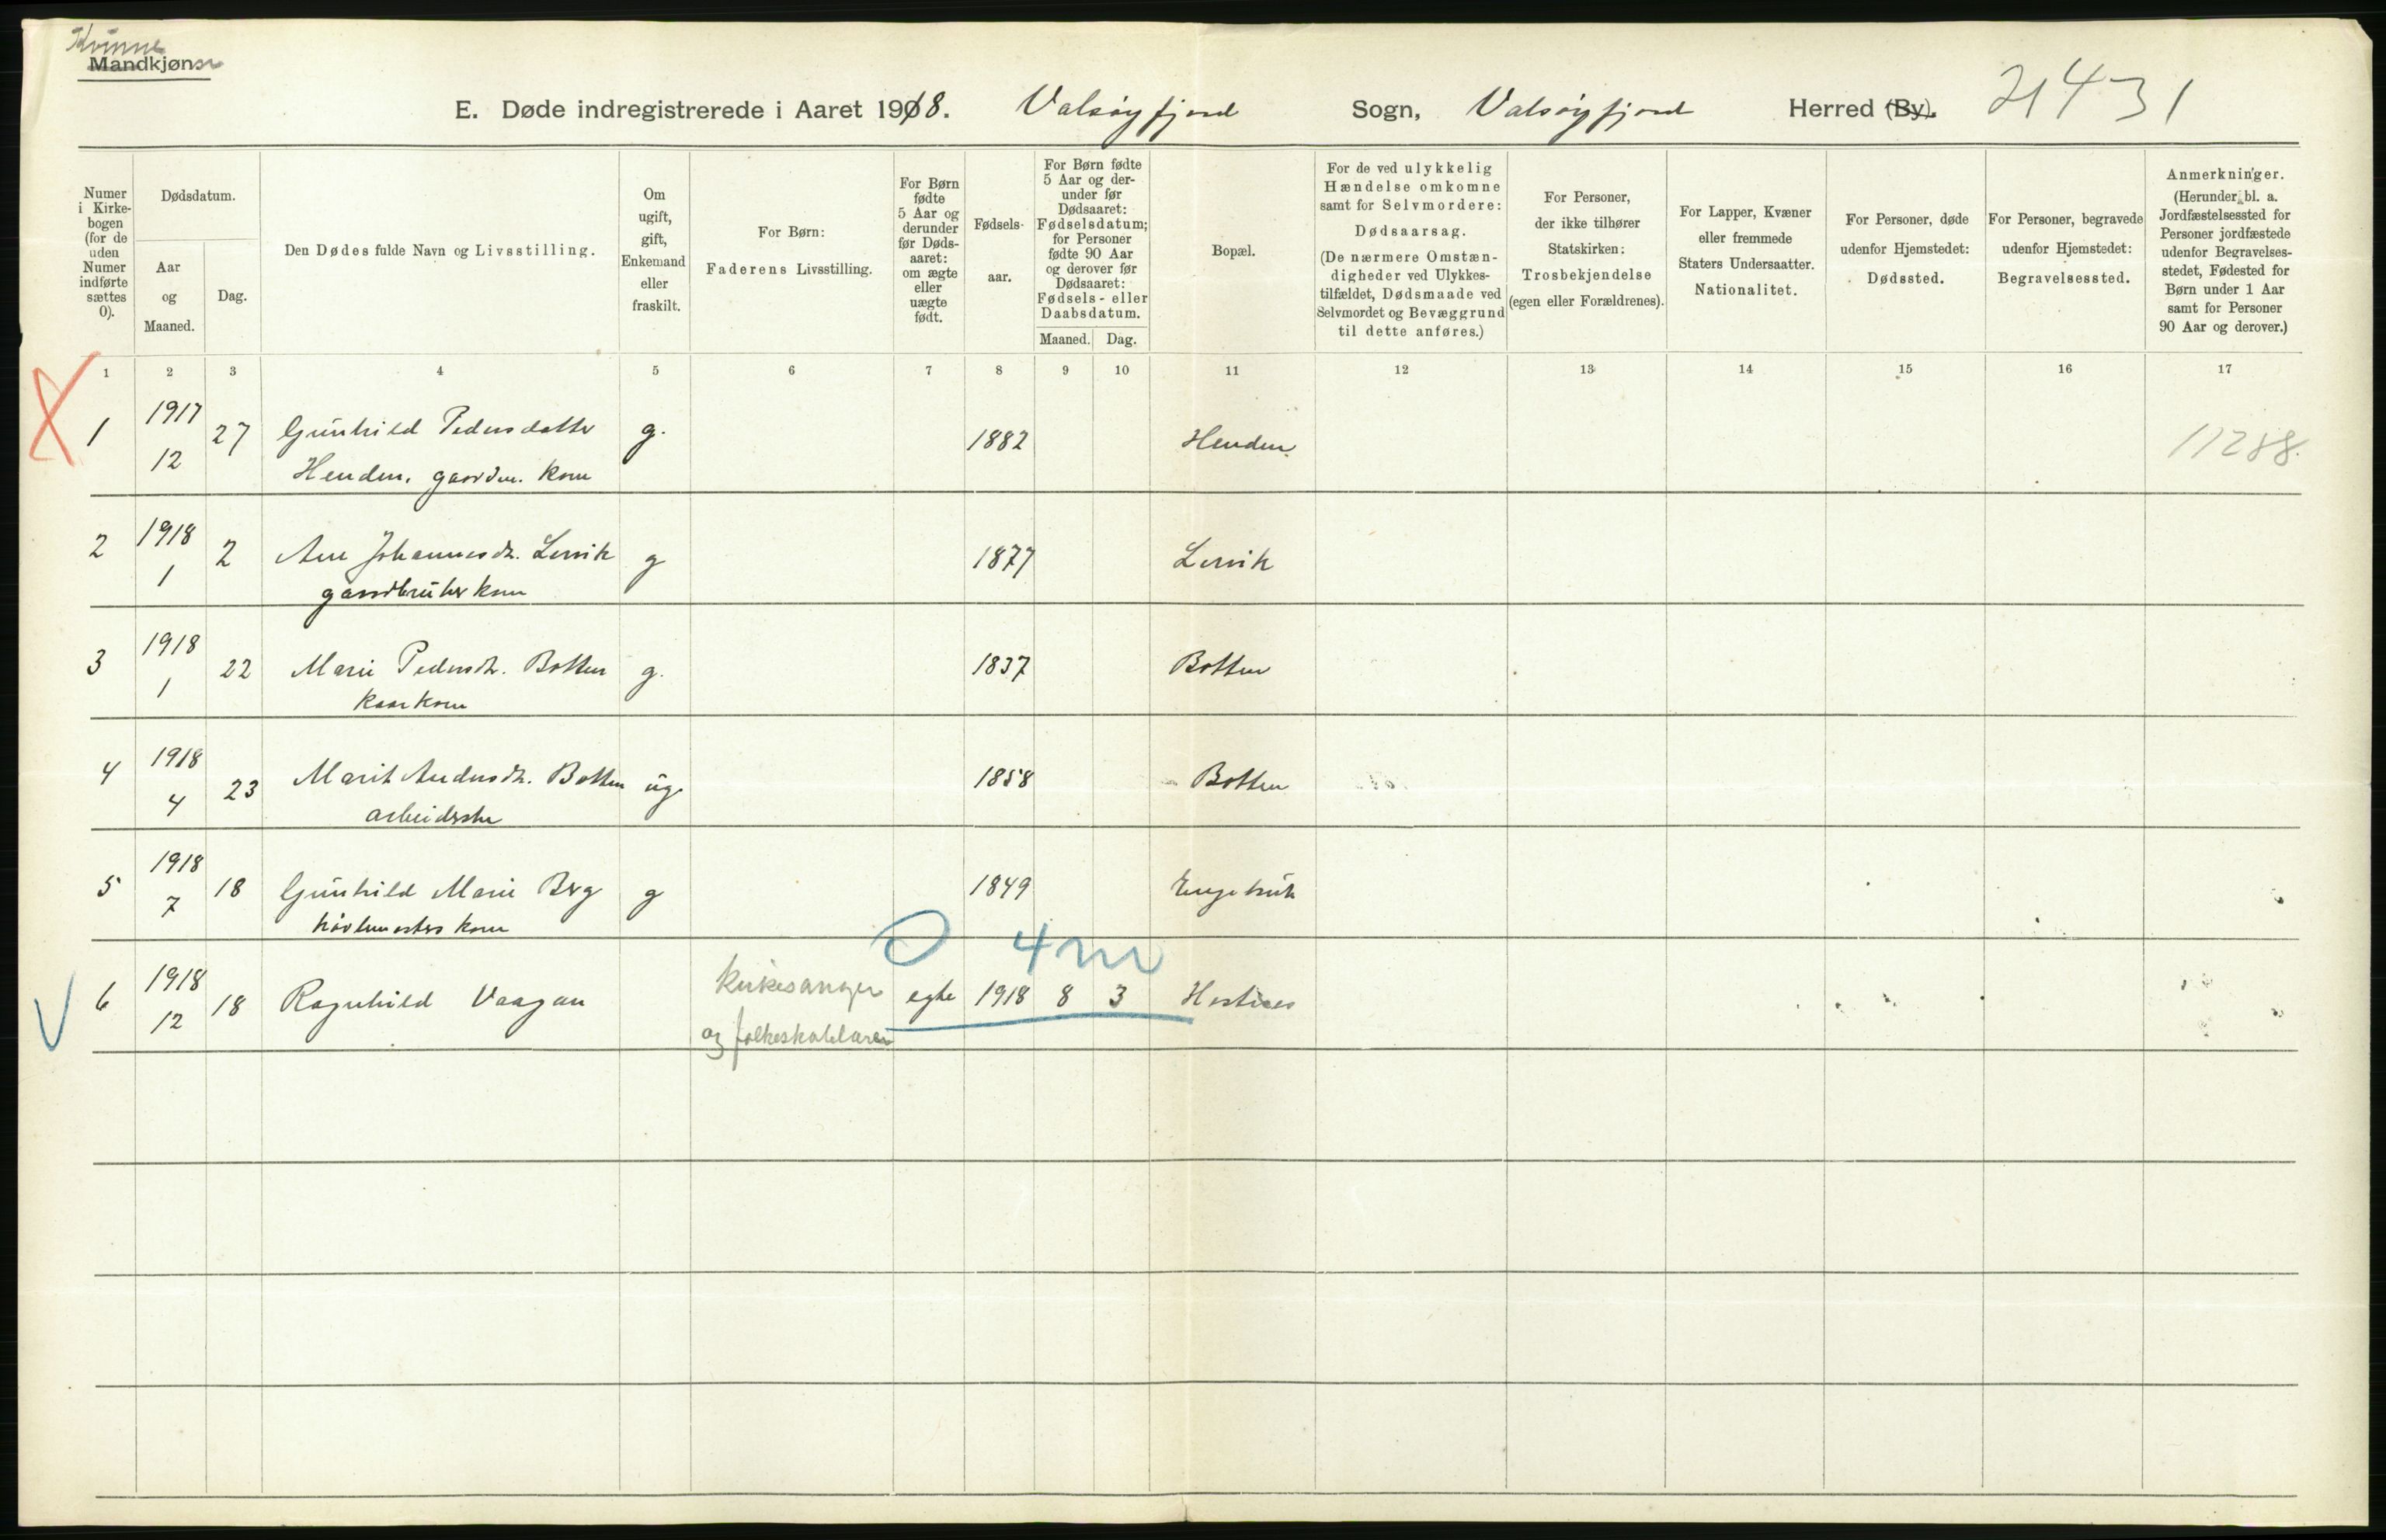 Kvinne
Mandkjøn
E. Døde indregistrerede i Aaret 1918. Valsøyfjord Sogn, Valsøyfjord Herred (By). 21431
Numer i Kirkebogen (for de uden Numer indførte sættes 0).
Dødsdatum.
Aar og Maaned.
Dag.
Den Dødes fulde Navn og Livsstilling.
Om ugift, gift, Enkemand eller fraskilt.
For Børn: Faderens Livsstilling.
For Børn fødte 5 Aar og derunder før Dødsaaret: om ægte eller uægte født.
Fødselsaar.
For Børn fødte 5 Aar og derunder før Dødsaaret: Fødselsdatum; for Personer fødte 90 Aar og derover før Dødsaaret: Fødsels- eller Daabsdatum.
Maaned. Dag.
Bopæl.
For de ved ulykkelig Hændelse omkomne samt for Selvmordere: Dødsaarsag. (De nærmere Omstændigheder ved Ulykkestilfældet, Dødsmaade ved Selvmordet og Bevæggrund til dette anføres.)
For Personer, der ikke tilhører Statskirken: Trosbekjendelse (egen eller Forældrenes).
For Lapper, Kvæner eller fremmede Staters Undersaatter. Nationalitet.
For Personer, døde udenfor Hjemstedet: Dødssted.
For Personer, begravede udenfor Hjemstedet: Begravelsessted.
Anmerkninger. (Herunder bl. a. Jordfæstelsessted for Personer jordfæstede udenfor Begravelsesstedet, Fødested for Børn under 1 Aar samt for Personer 90 Aar og derover.)
1 2 3 4 5 6 7 8 9 10 11 12 13 14 15 16 17
1 1917 12 27 Gunhild Pedersdatter g. 1882 Henden 11288.
Henden, gaardm. kone
2 1918 1 2 Ane Johannesdt. Lervik g 1877 Lervik
gaardbruker kone
3 1918 1 22 Marie Pedersdt. Botten g. 1837 Botten
kaarkone
4 1918 4 23 Marit Andersdt. Botten ug. 1858 Botten
arbeiderske
5 1918 7 18 Gunhild Marie Berg g 1849
kone
0 4 m
6 1918 12 18 Ragnhild Vaagan kirkesanger egte 1918 8 3 Hestnes
og folkeskolelærer